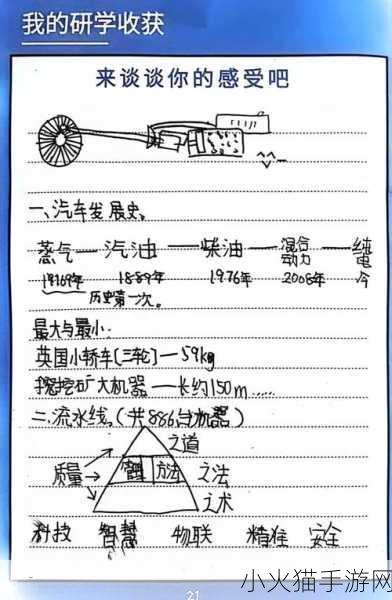 我的研学收获
来谈谈你的感受吧
一、汽车发展史。
蒸气—汽油—柴油—混合动力—纯電
1769年 1889年 1976年 2008年 今
历史第一次。
最大与最小:
英国小轿车[三轮]—59kg
挖矿大机器—长约150m......
二.流水线。(共886台机器)
之道
质量 管理 方法 之法
之术
科技 智慧 物联 精准 安全
21
小火猫手游网